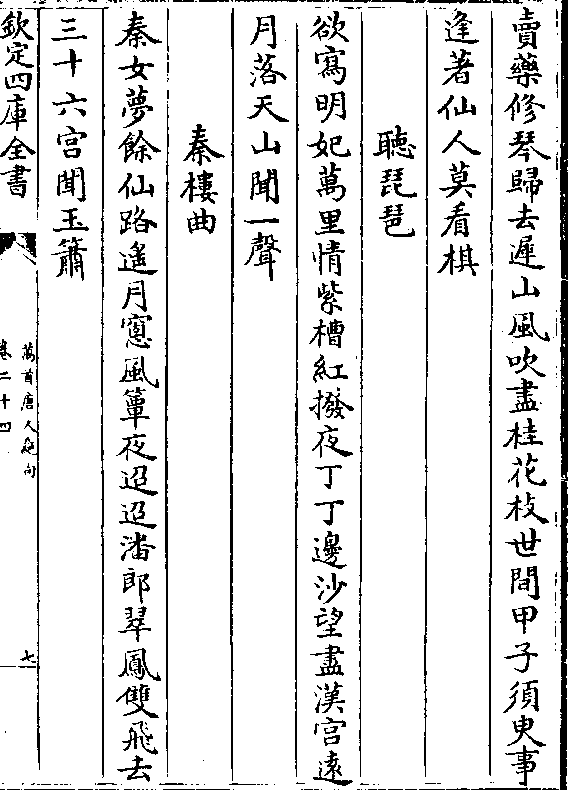 賣藥修琴歸去遲山風吹盡桂花枝世間甲子須臾事
逢著仙人莫看棋
聽琵琶
欲寫明妃萬里情紫槽紅撥夜丁丁邊沙望盡漢宫遠
月落天山聞一聲
秦樓曲
秦女夢餘仙路遥月窻風簟夜迢迢潘郎翠鳳雙飛去
三十六宫聞玉簫
欽定四庫全書
萬首唐人絶句
卷二十四
七